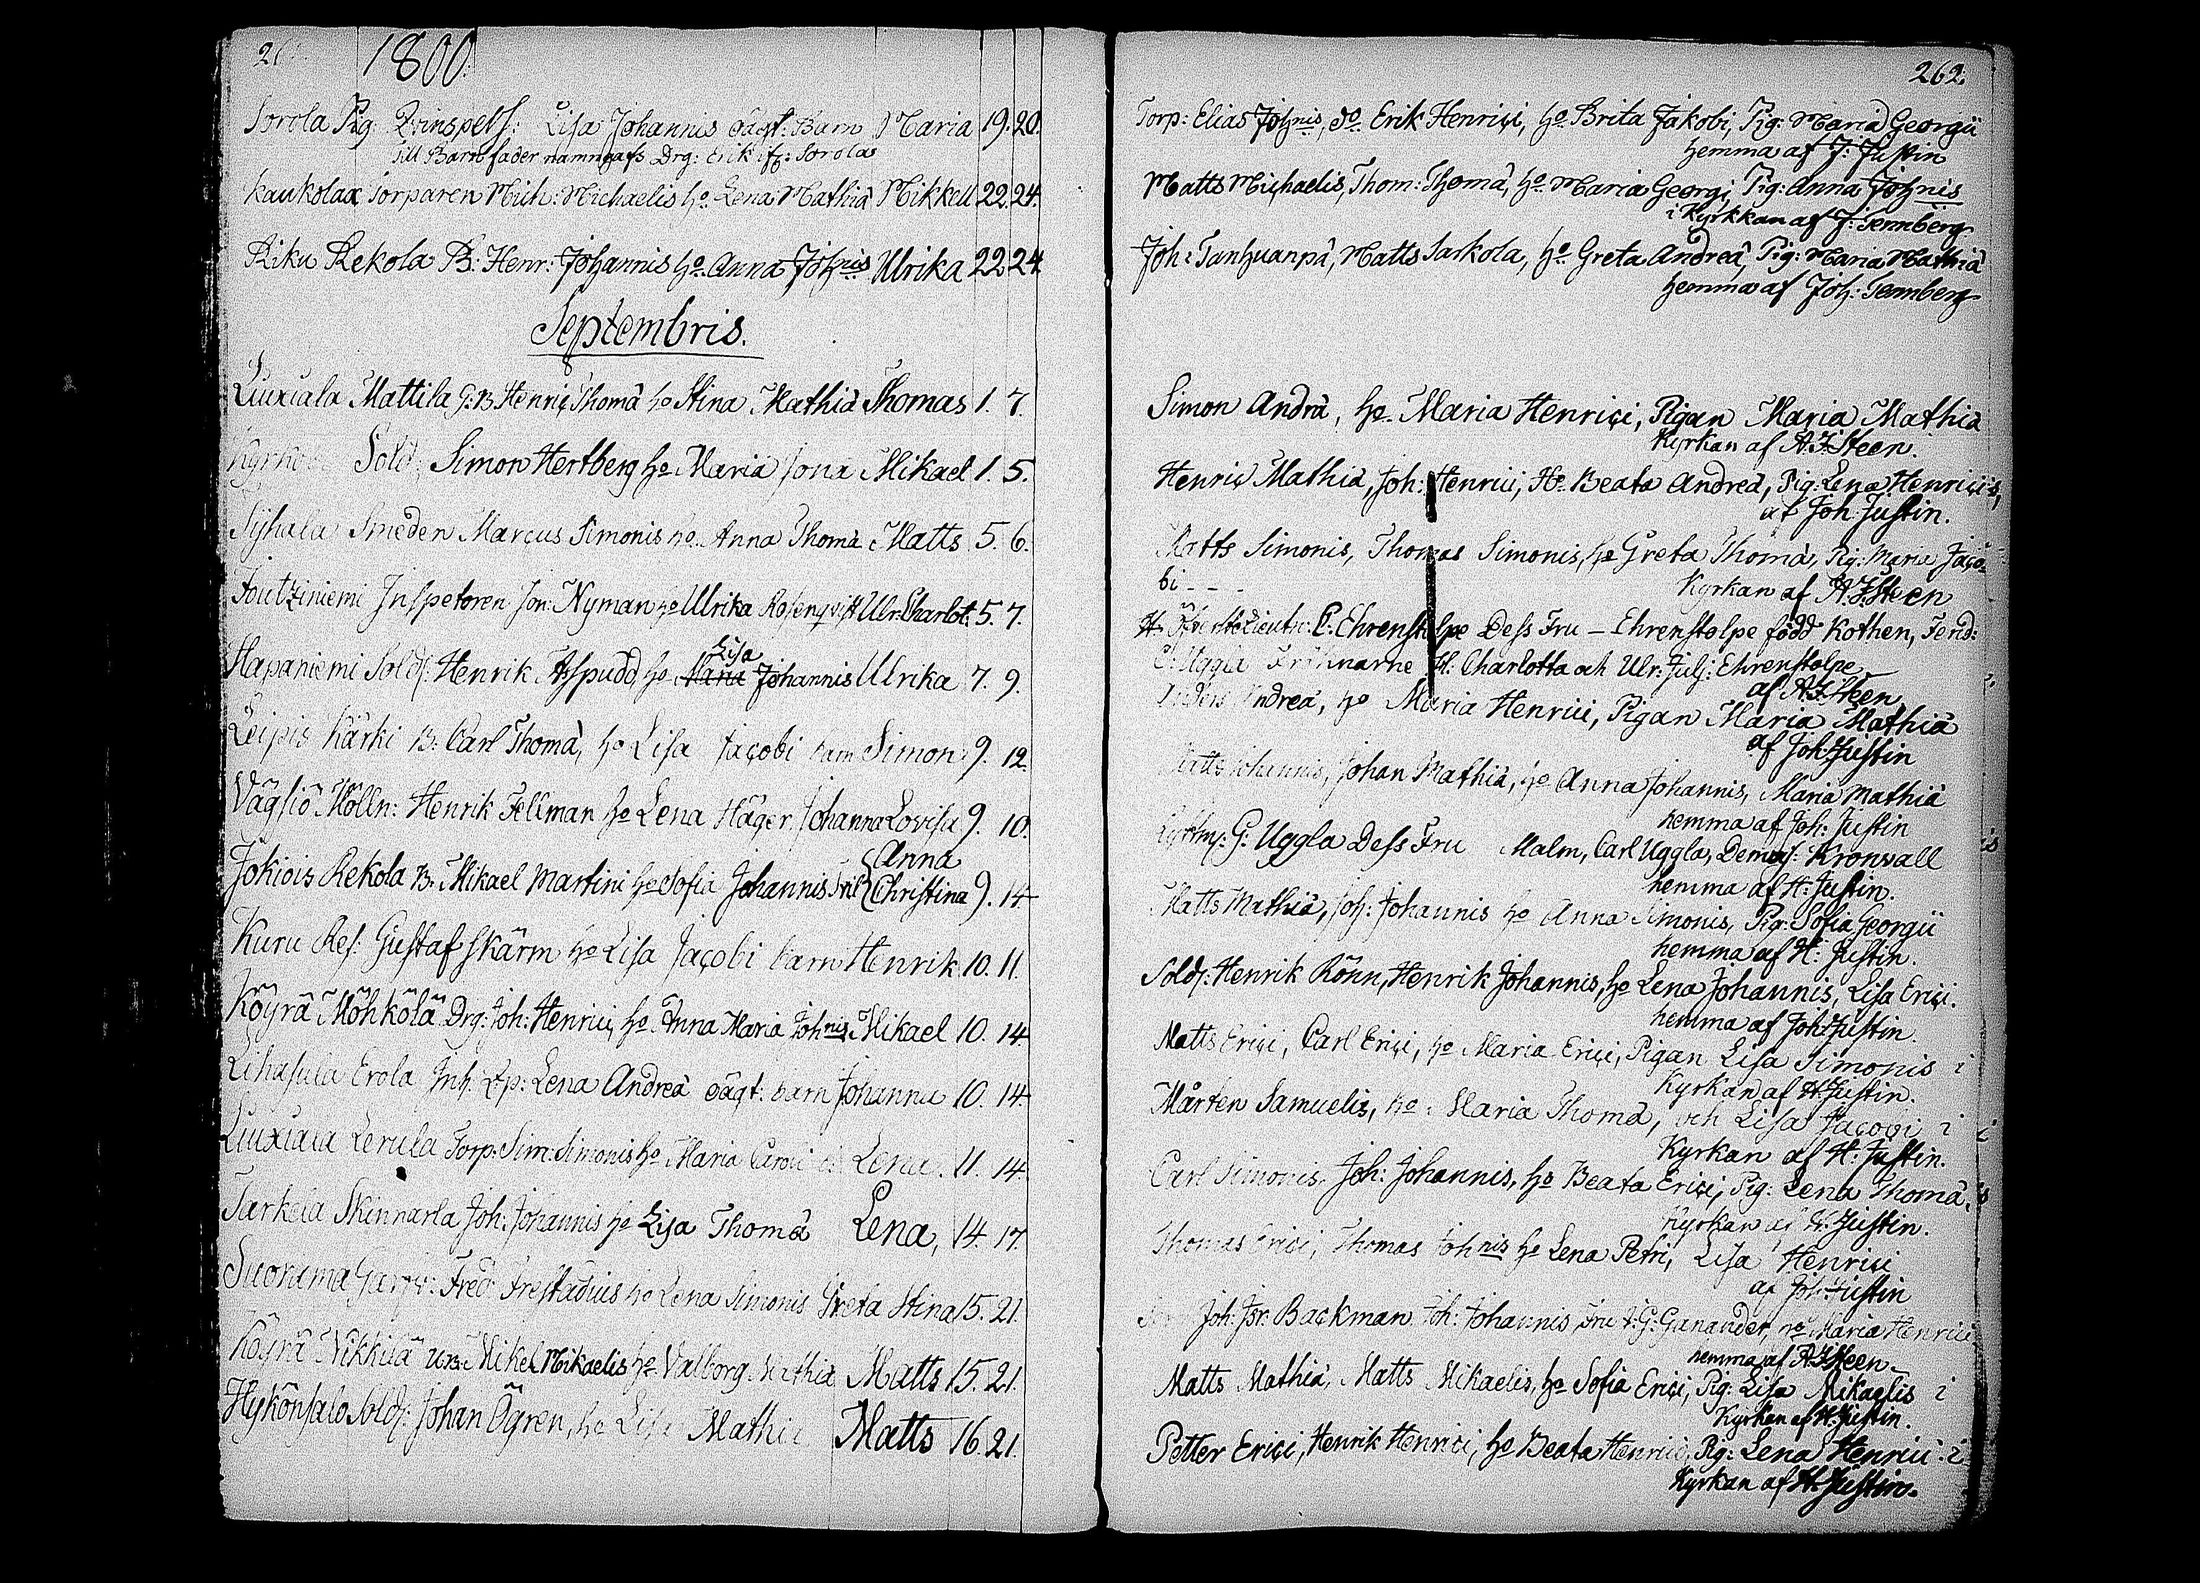 1800.
Sorola Pig: Lisa Johannis oägt: Barn Maria 19. 20.
till Barnfader namngafs Drg: Erik ifr: Sorola
Kaukola Torparen Mich: Michaelis ho Lena Mathiä Mikkell 22. 24.
Kiku Rekola B: Henr: Johannis ho Anna Johnis Ulrika 22 24.
Septembris.
Liuxiala Mattila G: B Henriç Thomä ho Stina Mathiä Thomas 1. 7.
Sold: Simon Hertberg ho Maria Jona Mikael 1. 5.
Smeden Marcus Simonis ho Anna Thomä Matts 5. 6.
Joutziniemi Inspetoren Jon: Nyman ho Ulrika Rosenqvist Ulr: Charlot: 5. 7.
Lisa
Hapaniemi Sold: Henrik Asspudd ho Maria Johannis Ulrika 7. 9.
Leipis Kärki B: Carl Thomä, ho Lisa Jaçobi barn Simon 9. 12.
Vägsiö Mölln: Henrik Fellman ho Lena Häger Johanna Lovisa 9. 10.
Anna
Jokiois Rekola B: Mikael Martini ho Sofia Johannis Christina 9. 14.
Kuru Res: Gustaf Skärm ho Lisa Jaçobi barn Henrik 10. 11.
Köyrä Möhkölä Drg: Joh: Henriçi, ho Anna Maria Johnis Mikael 10. 14.
Lihasula Erola Inh: Lp: Lena Andreä oägt: barn Johanna 10. 14.
Liuxiala Lerula Torp: Sim: Simonis ho Maria Caroli Lena. 11. 14.
Tarkela Skinnarla Joh: Johannis ho Lisa Thomä Lena, 14. 17.
Suorama Garfv: Fred: Frestadius ho Lena Simonis Greta Stina 15. 21.
Köyrä Nikkilä Mikel Mikaelis ho Valborg Mathiä Matts 15. 21.
Hykönsalo Sold: Johan Ögren, ho Lisa Mathiä Matts 16. 21.
262.
Torp: Elias Johnis, do Erik Henriçi, ho Brita Jakobi, Pig: Maria Georgii
hemma af J: Justin
Matts Michaelis, Thom: Thomä, ho Maria Georgi, Pig: Anna Johnis
i Kyrkkan af J: Tennberg
Joh: Tanhuanpä, Matts Sarkola, ho Greta Andreä, Pig: Maria Mathiä
hemma af Joh: Tennberg
Simon Andrä, ho Maria Henriçi, Pigan Maria Mathiä
Kyrkan af A.J. Steen.
Henriç Mathiä, Joh: Henriçi, Ho Beata Andreä, Pig: Lena Henriçi
af Joh: Justin.
Matts Simonis, Thomas Simonis, ho Greta Thomä, Pig: Maria Jaço-
bi - - -
Kyrkan af A.J. Steen
H. Öfverste Lieutn: C: Ehrenstolpe Dess Fru - Ehrenstolpe född Kothen, Fend:
Uggla Fröknarne H: Charlotta och Ulr: Julj: Ehrenstolpe
af A.J. Steen
Anders Andreä, ho Maria Henriçi, Pigan Maria Mathiä
af Joh: Justin
Matts Johannis, Johan Mathiä, ho Anna Johannis, Maria Mathiä
hemma af Joh: Justin
G: Uggla Dess Fru Malm, Carl Uggla, Demois: Kronvall
hemma af H: Justin.
Matts Mathiä, Joh: Johannis ho Anna Simonis, Pig: Sofia Georgii
hemma af H: Justin.
Sold: Henrik Rönn, Henrik Johannis, ho Lena Johannis, Lisa Eriçi.
hemma af Joh: Justin.
Matts Eriçi, Carl Eriçi, ho Maria Eriçi, Pigan Lisa Simonis i
Kyrkan af H: Justin.
Mårten Samuelis, ho: Maria Thomä, och Lisa Jaçobi i
Kyrkan af H: Justin.
Carl Simonis, Joh: Johannis, ho Beata Eriçi, Pig: Lena Thomä,
Kyrkan af H: Justin.
Thomas Eriçi, Thomas Johnis ho Lena Petri, Lisa Henriçi
af Joh: Justin
Joh: Isr: Backman Joh: Johannis Fru A: G: Ganander, ho Maria Henriçi
hemma af A.J. Steen
Matts Mathiä, Matts Mikaelis, ho Sofia Eriçi, Pig: Lisa Mikaelis i
Kyrkan af H: Justin.
Petter Eriçi, Henrik Henriçi, ho Beata Henriçi, Pig: Lena Henriçi i
Kyrkan af H: Justin.